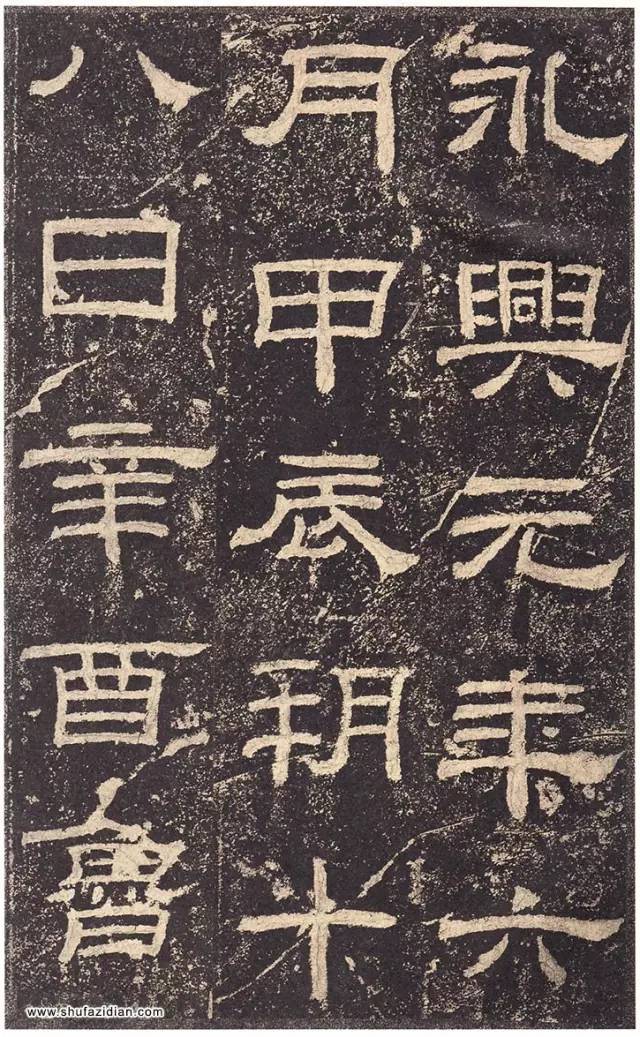 永興元年六
月甲辰朔十
八日辛酉魯
www.shufazidian.com